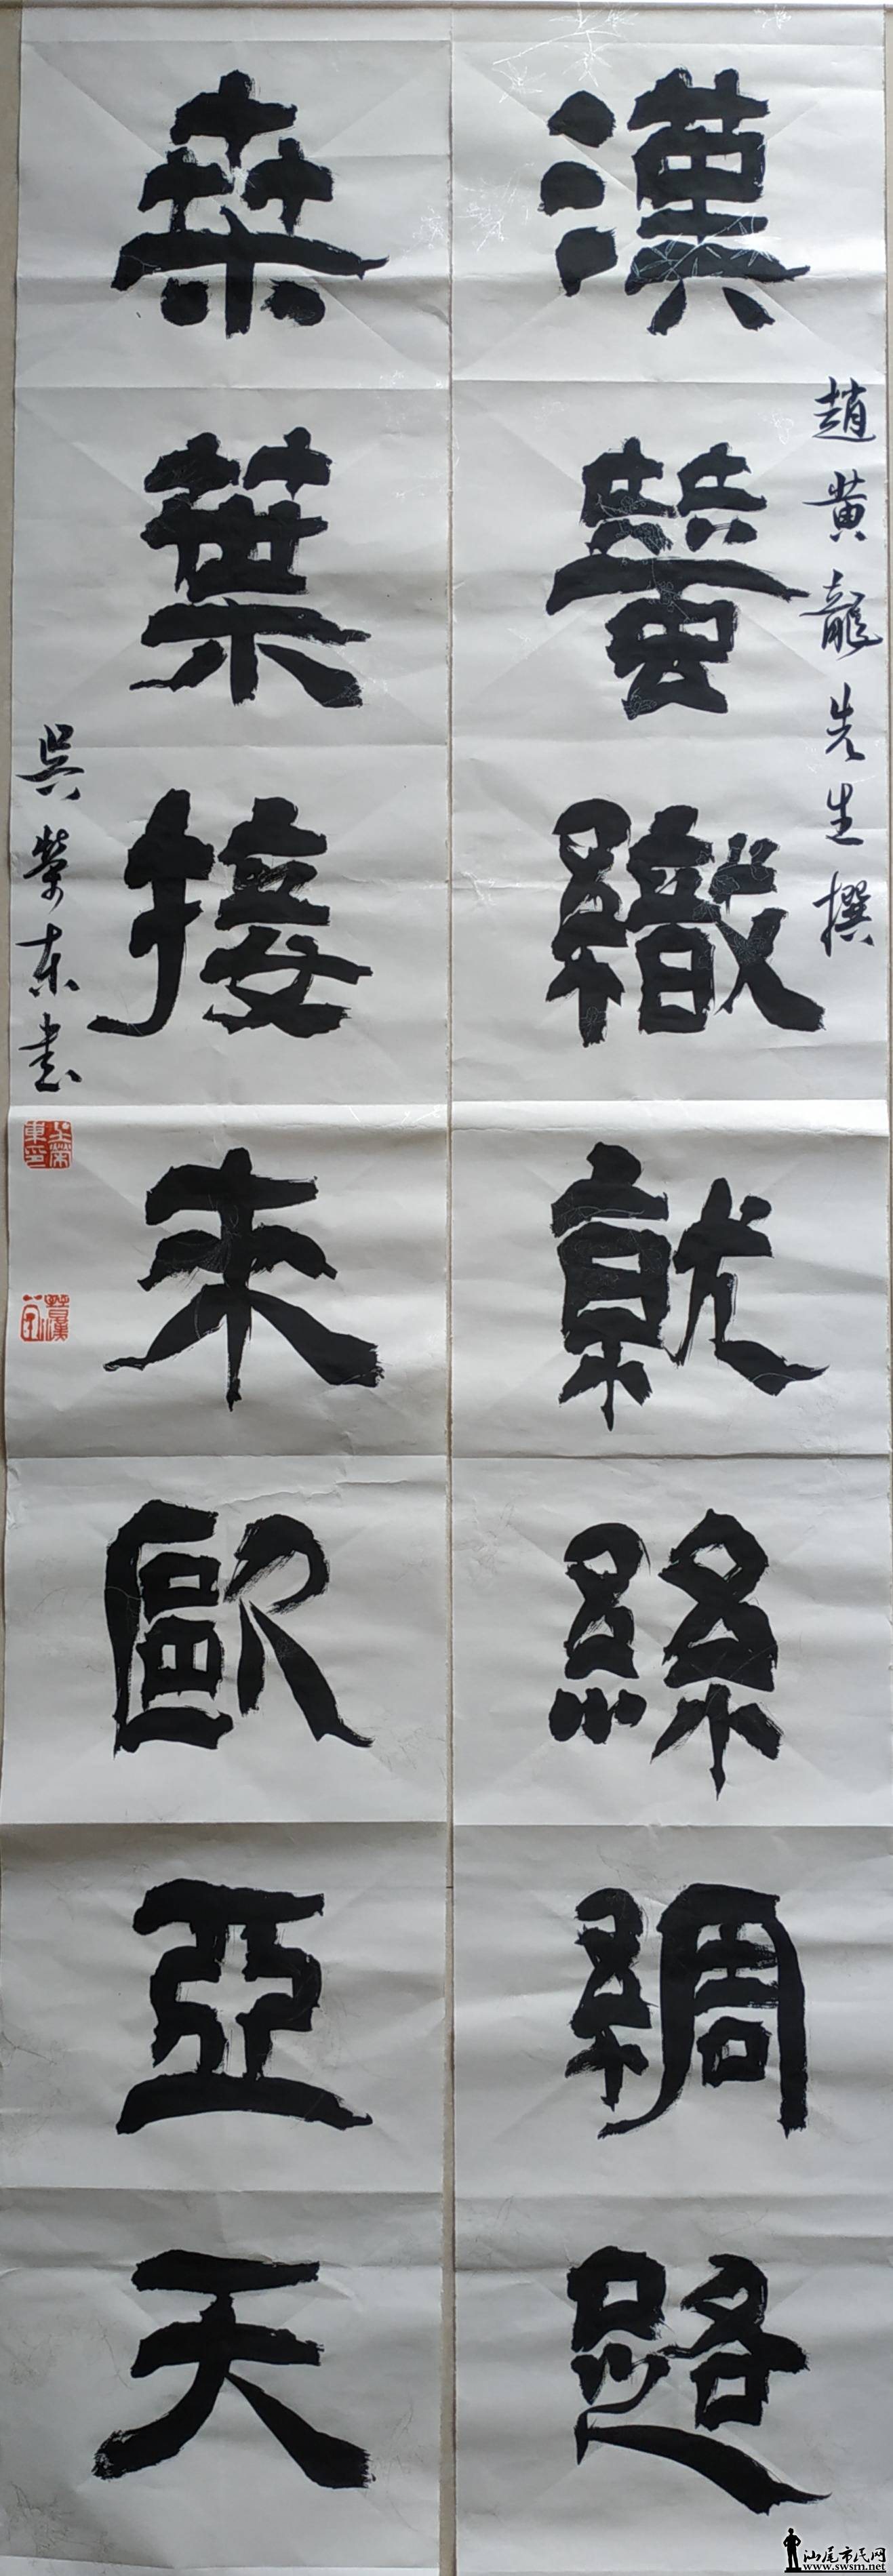 漢蠶織就絲綢路
趙黄龍先生撰
桑葉接来歐亞天
吴榮东书
汕尾市民网
www.swsm.net